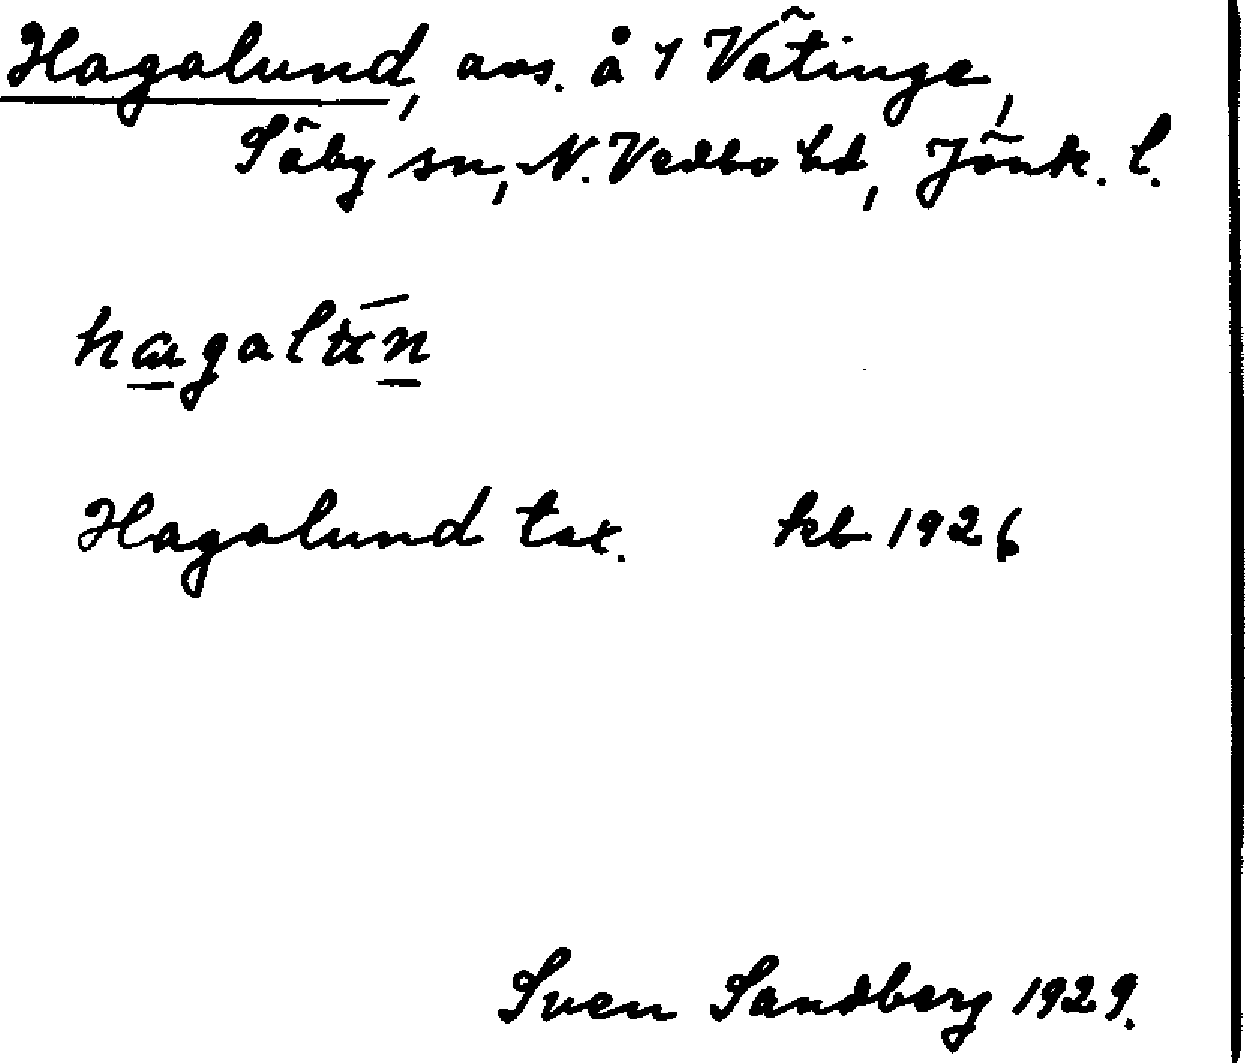 Hagalund, avs. å 1 Vätinge,
Säby sn, N. Vedbo hd, Jönk. l.
hagalun
Hagalund tsx. kb 1926
Sven Sandberg 1929.